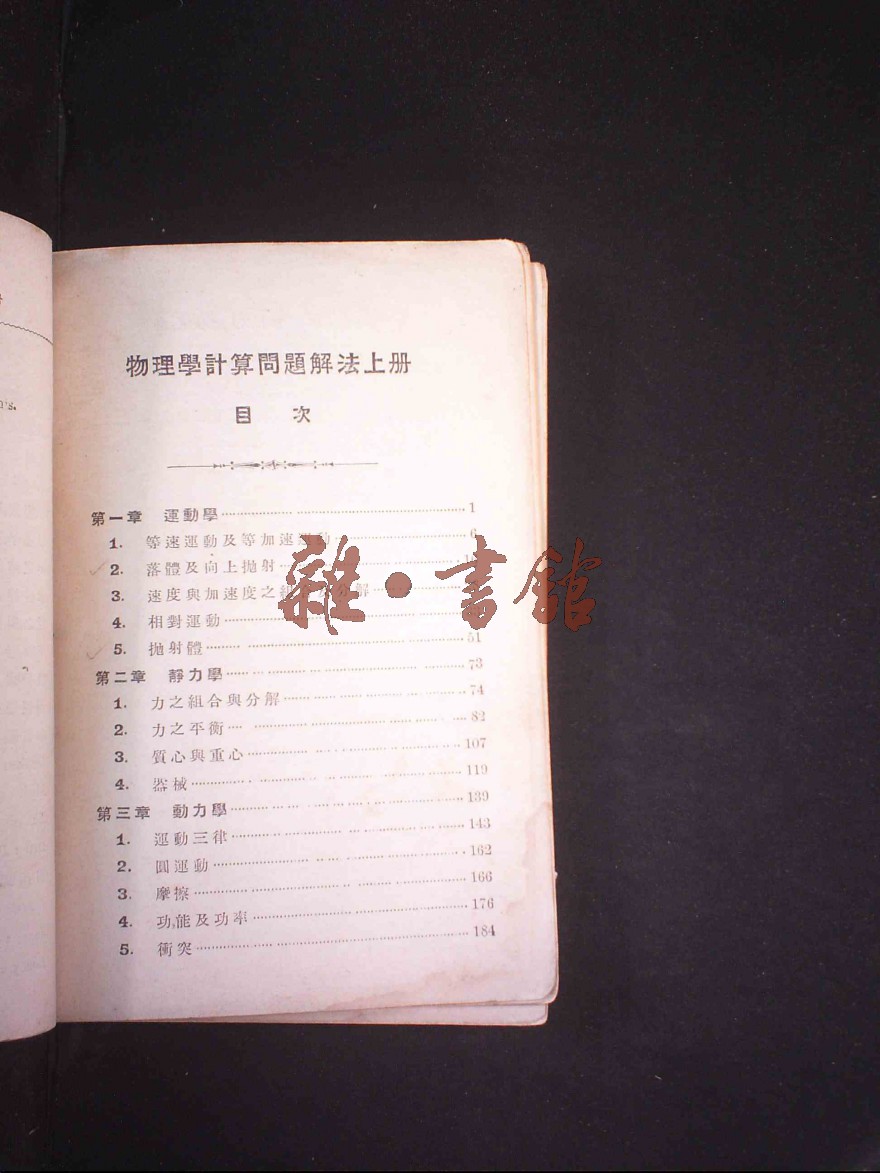 物理學計算問題解法上册
目 次
第一章 運動學 1
1. 等速運動及等加速運動 6
2. 落體及向上拋射
3. 速度與加速度之組合及分解
4. 相對運動
5. 拋射體 51
第二章 靜力學 73
1. 力之組合與分解 74
2. 力之平衡 82
3. 質心與重心 107
4. 器械 119
第三章 動力學 139
1. 運動三律 143
2. 圓運動 162
3. 摩擦 166
4. 功,能及功率 176
5. 衝突 184
雜·書館